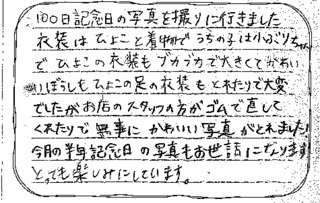 100日記念日の写真を撮りに行きました
衣装はひよこと着物でうちの子は小ぶりちゃん
でひよこの衣装もブカブカで大きくてかわい
いぼうしもひよこの足の衣装もとれたりで大変
でしたがお店のスタッフの方がゴムで直して
くれたりで無事にかわいい写真がとれました!
今月の半年記念日の写真もお世話になります
とっても楽しみにしています。